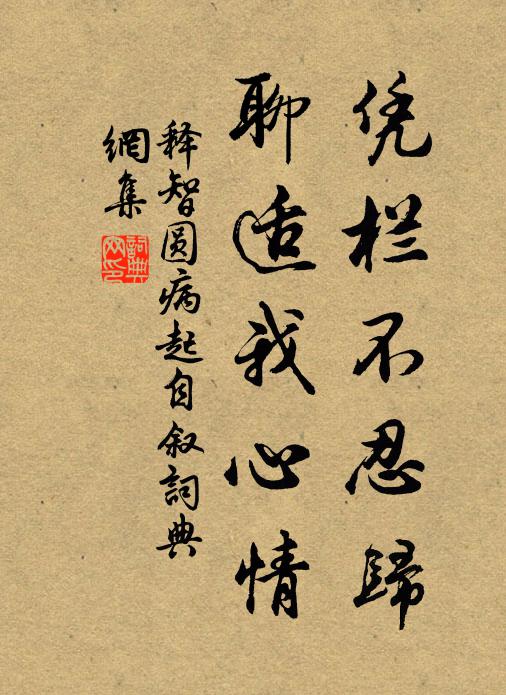 凭栏不忍歸
聊适我心情
释智圆病起自叙詞典
網集
詞典
网印